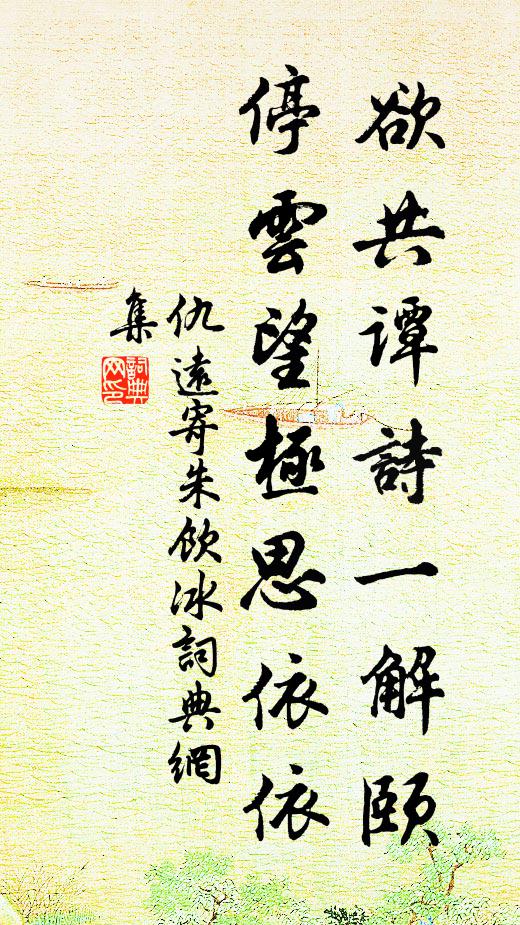 欲共譚詩一解頤
停雲望極思依依
仇遠寄朱飲冰詞典網
集
詞典
网印